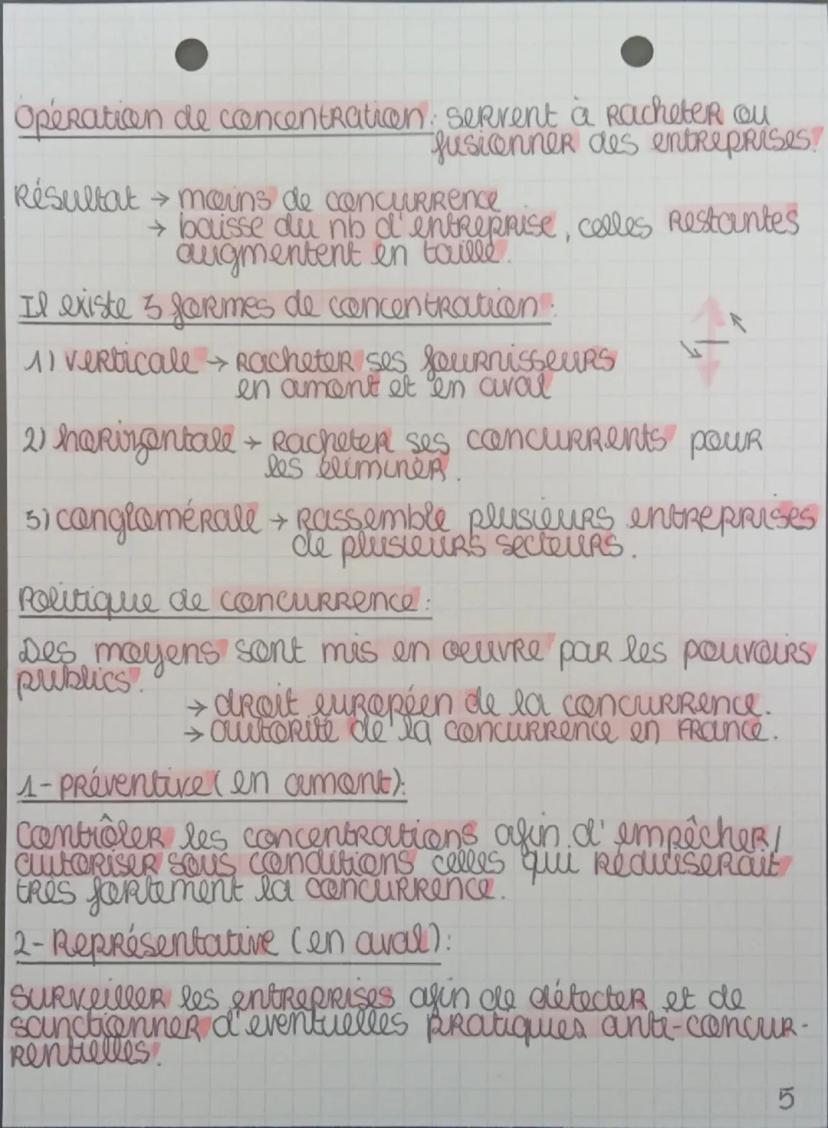 Opération de concentration : servent à racheter ou
fusionner des entreprises.
Résultat → moins de concurrence
→ baisse du nb d'entreprise, celles restantes
augmentent en taille.
Il existe 3 formes de concentration :
1) verticale → racheter ses fournisseurs
en amont et en aval
2) horizontale → racheter ses concurrents pour
les éliminer.
3) conglomérale → rassemble plusieurs entreprises
de plusieurs secteurs.
Politique de concurrence :
Des moyens sont mis en oeuvre par les pouvoirs
publics.
→ droit européen de la concurrence.
→ autorité de la concurrence en France.
1- Préventive (en amont) :
Contrôler les concentrations afin d'empêcher/
autoriser sous conditions celles qui réduiserait
très fortement la concurrence.
2- Représentative (en aval) :
Surveiller les entreprises afin de détecter et de
sanctionner d'éventuelles pratiques anti-concur-
rentielles.
5